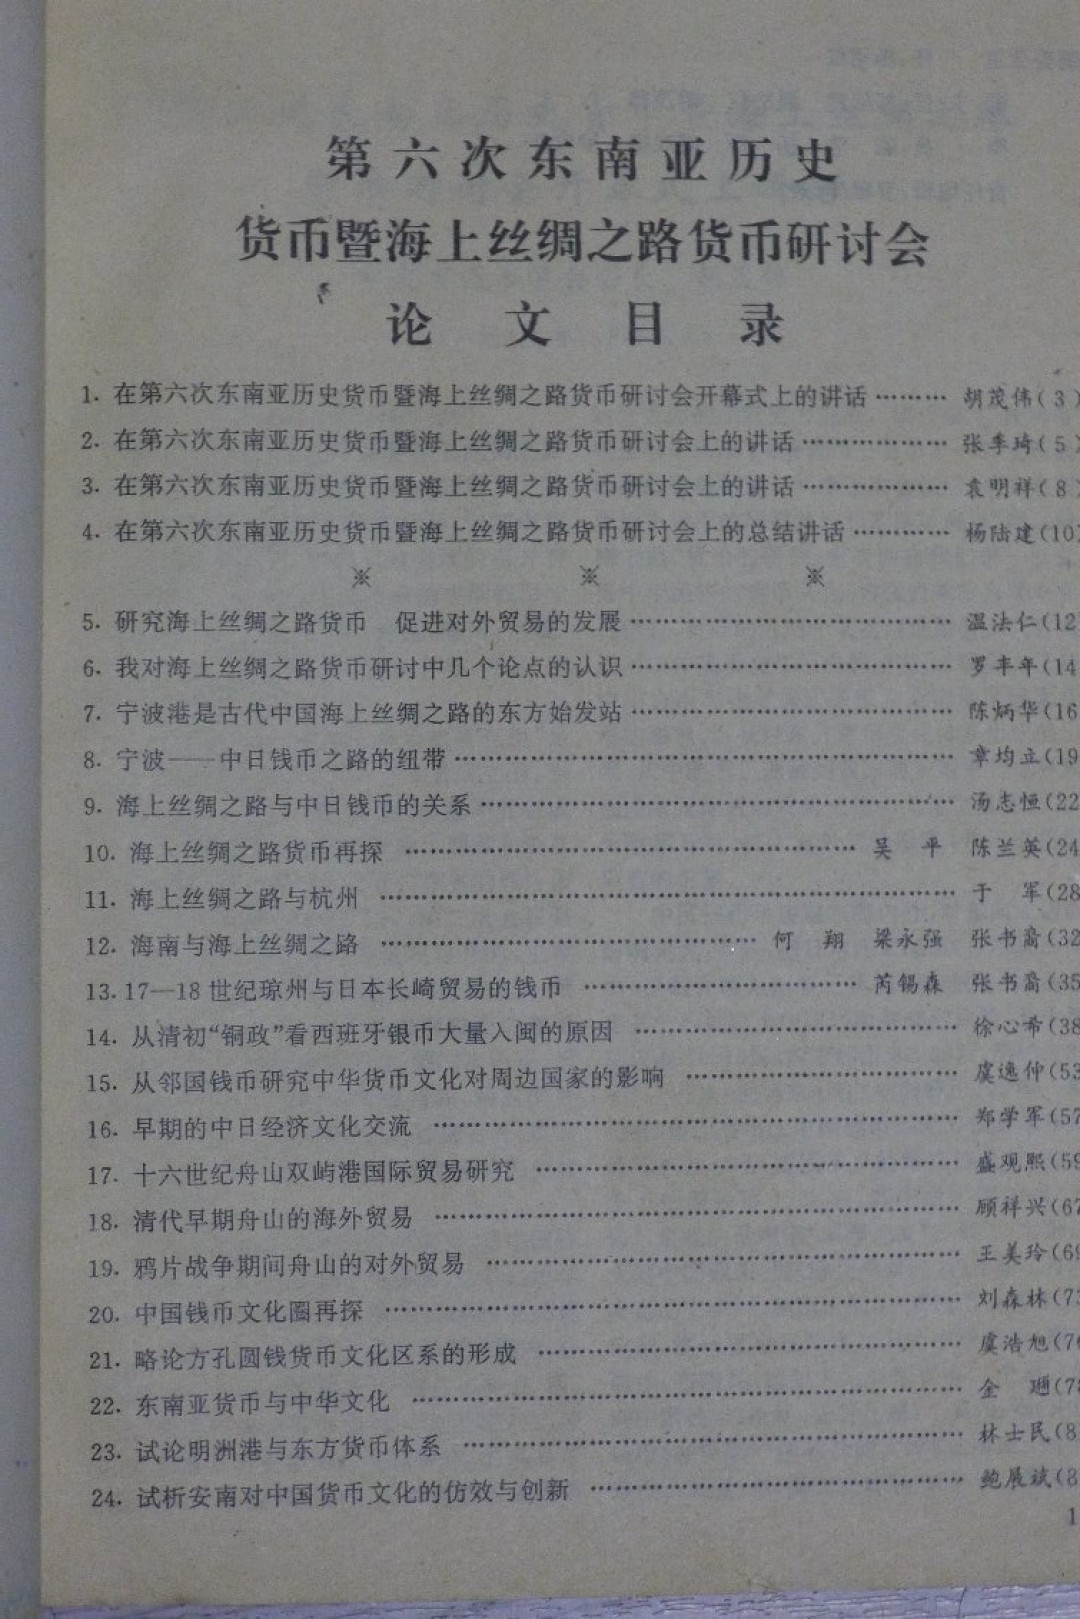 第六次东南亚历史
货币暨海上丝绸之路货币研讨会
论文目录
1. 在第六次东南亚历史货币暨海上丝绸之路货币研讨会开幕式上的讲话……… 胡茂伟(3)
2. 在第六次东南亚历史货币暨海上丝绸之路货币研讨会上的讲话……………… 张季琦(5)
3. 在第六次东南亚历史货币暨海上丝绸之路货币研讨会上的讲话……………… 袁明祥(8)
4. 在第六次东南亚历史货币暨海上丝绸之路货币研讨会上的总结讲话………… 杨陆建(10)
※ ※ ※
5. 研究海上丝绸之路货币 促进对外贸易的发展……………………………… 温法仁(12
6. 我对海上丝绸之路货币研讨中几个论点的认识……………………………… 罗丰年(14
7. 宁波港是古代中国海上丝绸之路的东方始发站……………………………… 陈炳华(16
8. 宁波——中日钱币之路的纽带………………………………………………… 章均立(19
9. 海上丝绸之路与中日钱币的关系……………………………………………… 汤志恒(22
10. 海上丝绸之路货币再探 ……………………………………………… 吴 平 陈兰英(24
11. 海上丝绸之路与杭州 ………………………………………………………… 于 军(28
12. 海南与海上丝绸之路 …………………………………… 何 翔 梁永强 张书裔(32
13. 17—18世纪琼州与日本长崎贸易的钱币 ………………………… 芮锡森 张书裔(35
14. 从清初“铜政”看西班牙银币大量入闽的原因 ……………………………… 徐心希(38
15. 从邻国钱币研究中华货币文化对周边国家的影响 ………………………… 虞逸仲(53
16. 早期的中日经济文化交流 …………………………………………………… 郑学军(57
17. 十六世纪舟山双屿港国际贸易研究 ………………………………………… 盛观熙(59
18. 清代早期舟山的海外贸易 …………………………………………………… 顾祥兴(67
19. 鸦片战争期间舟山的对外贸易 ……………………………………………… 王美玲(69
20. 中国钱币文化圈再探 ………………………………………………………… 刘森林(73
21. 略论方孔圆钱货币文化区系的形成 ………………………………………… 虞浩旭(76
22. 东南亚货币与中华文化 ……………………………………………………… 金 (78
23. 试论明洲港与东方货币体系 ………………………………………………… 林士民(8
24. 试析安南对中国货币文化的仿效与创新 …………………………………… 鲍展斌(8
1